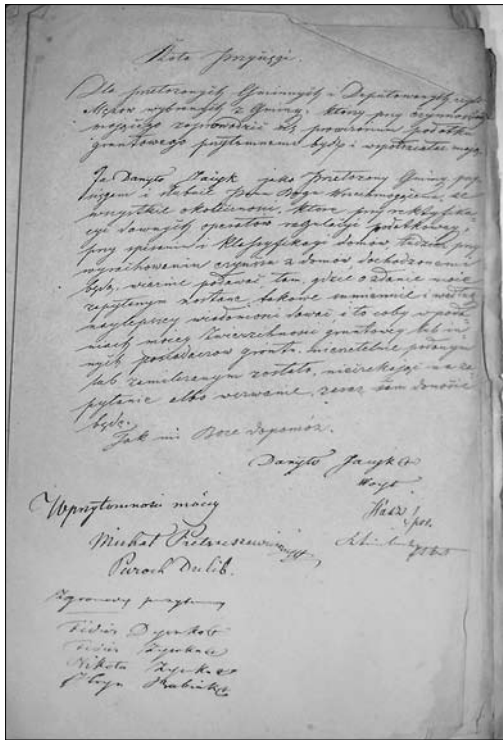 Rota przysięgi.
Dla przełożonych Gminnych i Deputowanych czyli
Mężów wybranych z Gminy, którzy przy czynnościach
mającego zaprowadzić się prowizorium podatku
gruntowego przytomnemi będą i współdziałać mają
Ja Danyło Jacyk jako Przełożony Gminy przy
sięgam i ślubuję Panu Bogu Wszechmogącemu, że
wszystkie okoliczności, które przy rektyfika
cyi dawnych operatów regulacyi podatkowej,
przy spisaniu i klasyfikacyi domów, tudzież przy
wyrachowaniu czynszu z domów dochodzonemi
będą, wiernie podawać tam, gdzie o zdanie moje
zapytanym zostanę, takowe sumiennie i według
najlepszej wiadomości dawać i to coby w poda
niach mojej Zwierzchności gruntowej lub in
nych posiadaczów gruntu, nierzetelnie podanym
lub zamilczanym zostało, nieczekając na za
pytanie albo wezwanie, zaraz sam donosić
będę.
Tak mi Boże dopomóż.
Danyło Jacyk
Woyt
W przytomności mojej
Michał
Paroch Dulib.
Fedko
Nikoła